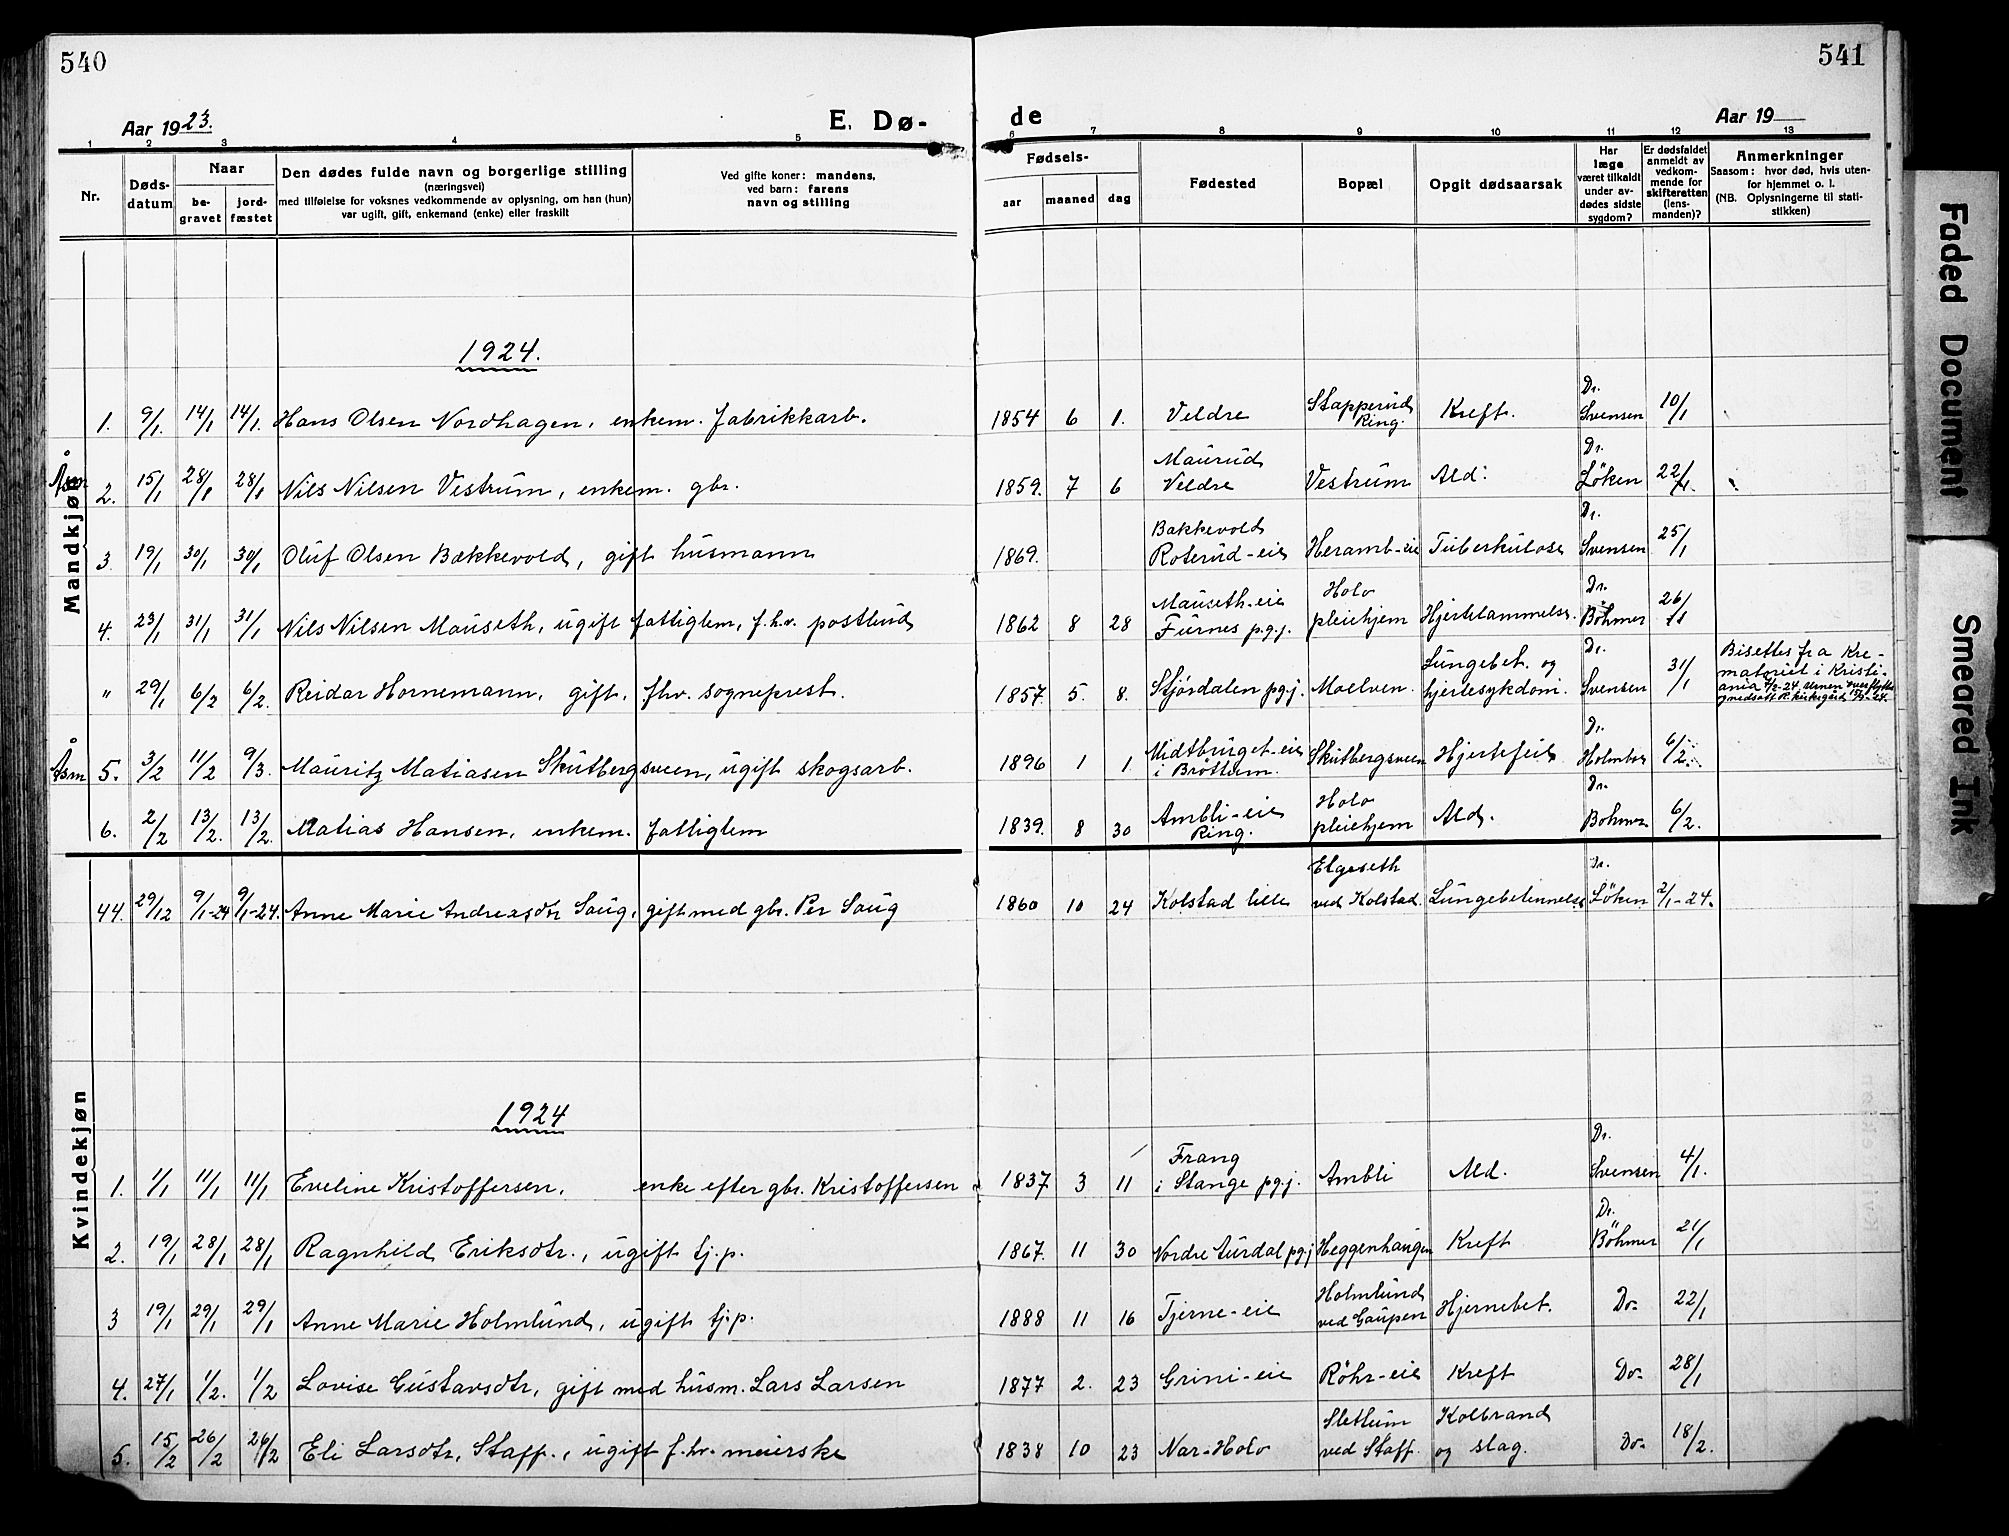 540
541
Aar 1923.
E. Dø-
de
Aar 19
1 2 3 4 5 6 7 8 9 10 11 12 13
Nr.
Døds-
datum
Naar
be-
gravet
jord-
fæstet
Den dødes fulde navn og borgerlige stilling
(næringsvei)
med tilføielse for voksnes vedkommende av oplysning, om han (hun)
var ugift, gift, enkemand (enke) eller fraskilt
Ved gifte koner: mandens,
ved barn: farens
navn og stilling
Fødsels-
aar
maaned
dag
Fødested
Bopæl
Opgit dødsaarsak
Har
læge
været tilkaldt
under av-
dødes sidste
sygdom?
Er dødsfaldet
anmeldt av
vedkom-
mende for
skifteretten
(lens-
manden)?
Anmerkninger
Saasom: hvor død, hvis uten-
for hjemmet o. l.
(NB. Oplysningerne til stati-
stikken)
Mandkjøn
1924.
1. 9/1. 14/1 14/1. Hans Olsen Nordhagen, enkem. fabrikkarb. 1854 6 1. Veldre Stapperud Ring. Kreft. Dr. Svensen 10/1
Åsm 2. 15/1 28/1 28/1 Nils Nilsen Vestrum, enkem. gbr. 1859. 7 6 Maurud Veldre Vestrum Ald. Dr. Löken 22/1.
3. 19/1 30/1 30/1 Oluf Olsen Bækkevold, gift husmann 1869. Bakkevold Roterud-eie Heramb-eie Tuberkulose Dr. Svensen 25/1
4. 23/1 31/1 31/1 Nils Nilsen Mauseth, ugift fattiglem, f.h.v. postbud 1862 8 28 Mauseth-eie Furnes p.g.j. Holo pleiehjem Hjertelammelse. Dr. Böhmer 26/1
" 29/1 6/2 6/2. Reidar Hornemann, gift, fhv. sogneprest. 1857. 5. 8. Stjørdalen pg.j. Moelven. Lungebet. og hjertesykdom. Dr. Svensen 31/1 Bisettes fra Kre-
matoriet i Kristi-
ania 6/2-24. Urnen overflyttet
Åsm 5. 3/2 11/2 9/3. Mauritz Matiasen Skutbergsveen, ugift skogsarb. 1896 1 1 Midtbruget-eie i Brøttum. Skutbergsveen Hjertefeil Dr. Holmboe 6/2.
6. 2/2 13/2. 13/2. Matias Hansen, enkem. fattiglem 1839. 8 30 Ambli-eie Ring. Holo pleiehjem Ald. Dr. Bohmer 6/2.
Kvindekjøn
44. 29/12 9/1-24 9/1-24. Anne Marie Andreasdtr Saug, gift med gbr. Per Saug 1860 10 24 Kolstad lille Elgeseth ved Kolstad. Lungebetennelse Dr. Löken 2/1-24.
1924
1. 1/1 11/1 11/1 Eveline Kristoffersen, enke efter gbr. Kristoffersen 1837 3 11 Frang i Stange pg.j. Ambli Ald. Dr. Svensen 4/1.
2. 19/1 28/1 28/1 Ragnhild Eriksdtr., ugift tj.p. 1867. 11 30 Nordre Aurdal pg.j Heggenhaugen Kreft Dr. Böhmer 21/1
3 19/1 29/1 29/1 Anne Marie Holmlund, ugift tj.p. 1888 11 16 Tjerne-eie Holmlund ved Gaupen Hjernebet. Do- 22/1
4. 27/1 1/2. 1/2 Lovise Gustavsdtr, gift med husm. Lars Larsen 1877 2. 23 Grini-eie Röhr-eie Kreft Do- 28/1
5. 15/2 26/2 26/2 Eli Larsdtr, Staff., ugift f.hv. meierske 1838 10 23 Nar-Holo Slettum ved Staff. Kolbrand og slag. Do- 18/2.
Faded Document
Smeared Ink